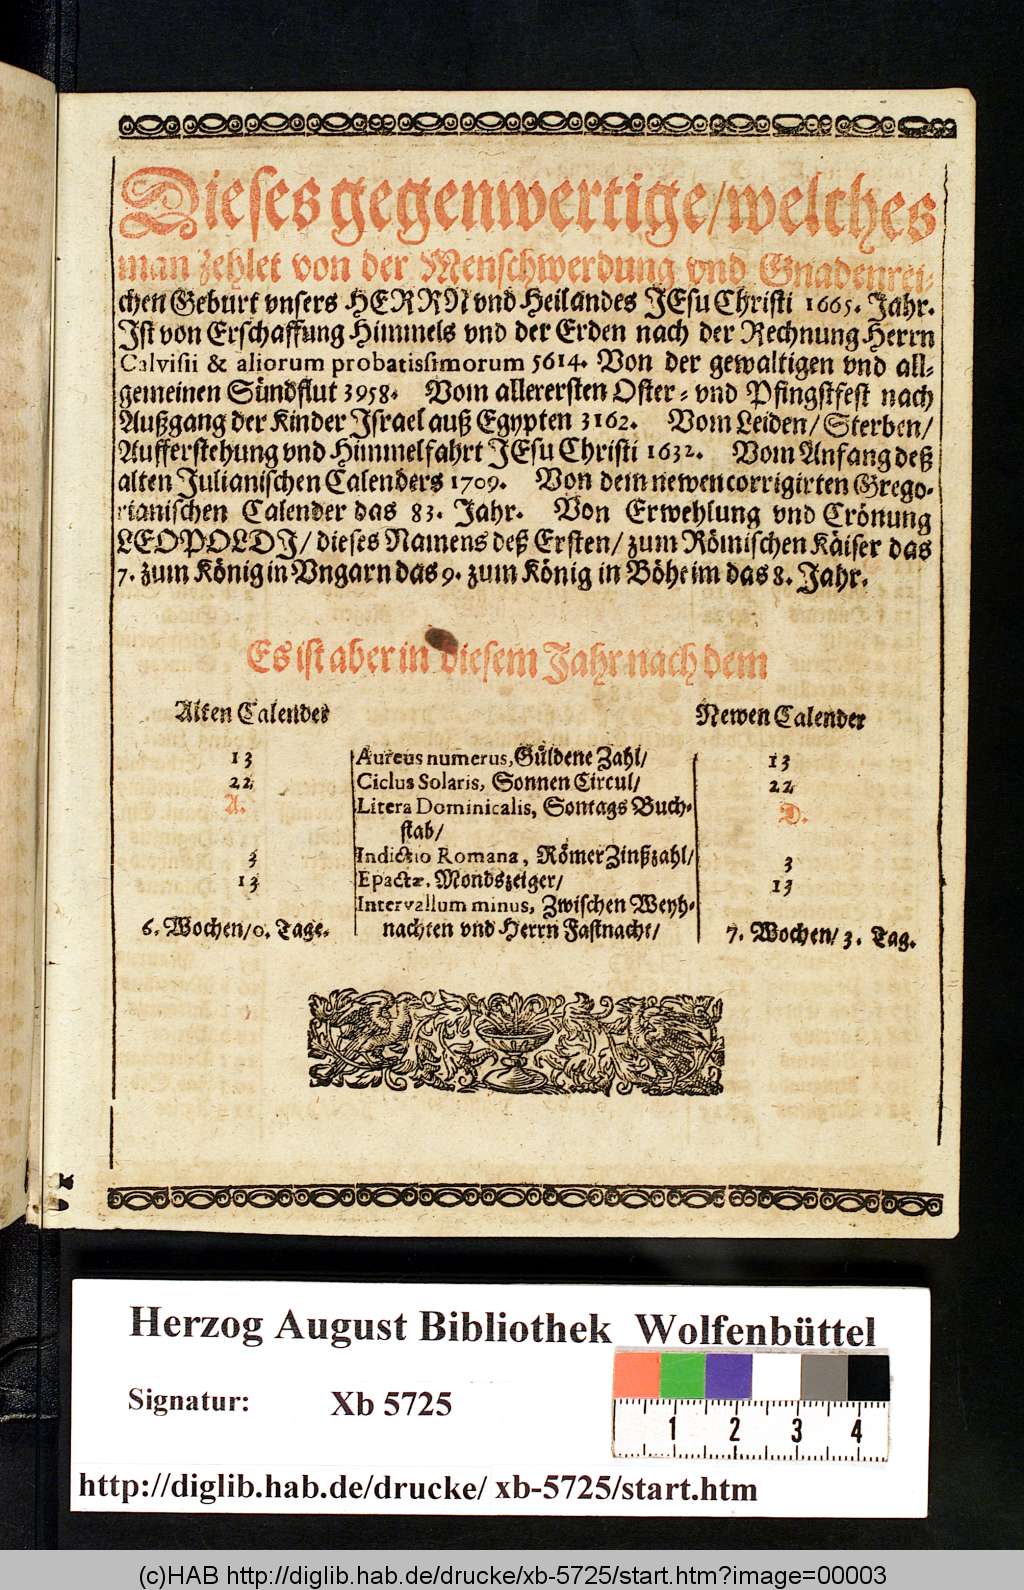 Dieses gegenwertige/welches
man zehlet von der Menschwerdung vnd Gnadenrei-
chen Geburt vnsers HERRN vnd Heilandes JEsu Christi 1665. Jahr.
Jst von Erschaffung Himmels vnd der Erden nach der Rechnung Herrn
Calvisii & aliorum probatissimorum 5614. Von der gewaltigen vnd all-
gemeinen Sündflut 3958. Vom allerersten Oster- vnd Pfingstfest nach
Außgang der Kinder Jsrael auß Egypten 3162. Vom Leiden/ Sterben/
Aufferstehung vnd Himmelfahrt JEsu Christi 1632. Vom Anfang deß
alten Julianischen Calenders 1709. Von dem newen corrigirten Grego-
rianischen Calender das 83. Jahr. Von Erwehlung vnd Crönung
LEOPOLDJ/ dieses Namens deß Ersten/ zum Römischen Käiser das
7. zum König in Vngarn das 9. zum König in Böheim das 8. Jahr.
Es ist aber in diesem Jahr nach dem
Alten Calendes Newen Calender
13 Aureus numerus, Güldene Zahl/ 13
22 Ciclus Solaris, Sonnen Circul/ 22
A. Litera Dominicalis, Sontags Buch- D.
stab/
3 Indictio Romana, Römer Zinßzahl/ 3
13 Epactæ, Mondszeiger/ 13
Intervallum minus, Zwischen Weyh-
6. Wochen/0. Tage. nachten vnd Herrn Fastnacht/ 7. Wochen/ 3. Tag.
Herzog August Bibliothek Wolfenbüttel
Signatur: Xb 5725
1 2 3 4
http://diglib.hab.de/drucke/ xb-5725/start.htm
(c)HAB http://diglib.hab.de/drucke/xb-5725/start.htm?image=00003